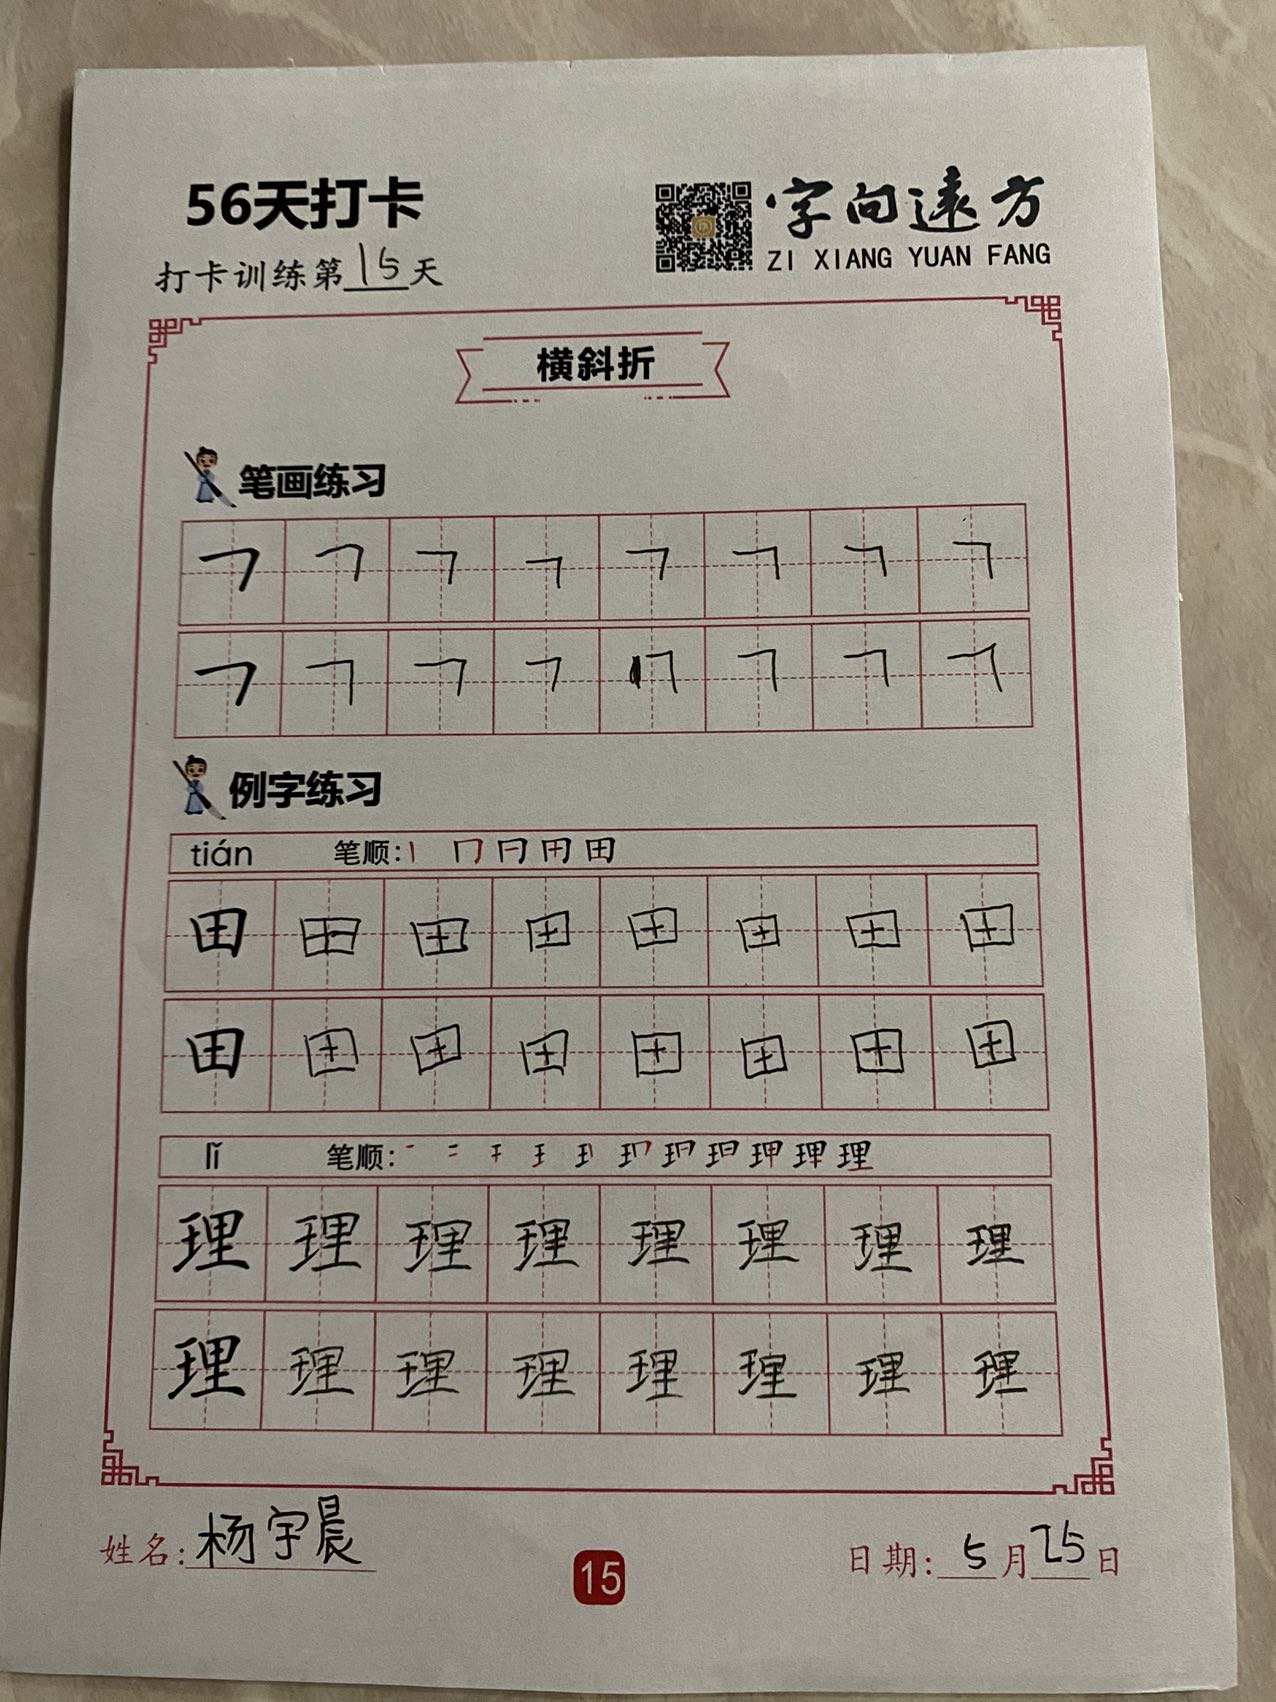 56天打卡
字向远方
ZI XIANG YUAN FANG
打卡训练第15天
横斜折
笔画练习
㇕ ㇕ ㇕ ㇕ ㇕ ㇕ ㇕ ㇕
㇕ ㇕ ㇕ ㇕ ㇕ ㇕ ㇕ ㇕
例字练习
tián 笔顺: 丨 冂 冃 田 田
田 田 田 田 田 田 田 田
田 田 田 田 田 田 田 田
lǐ 笔顺: 理
理 理 理 理 理 理 理 理
理 理 理 理 理 理 理 理
姓名: 杨宇晨
15
日期: 5月25日